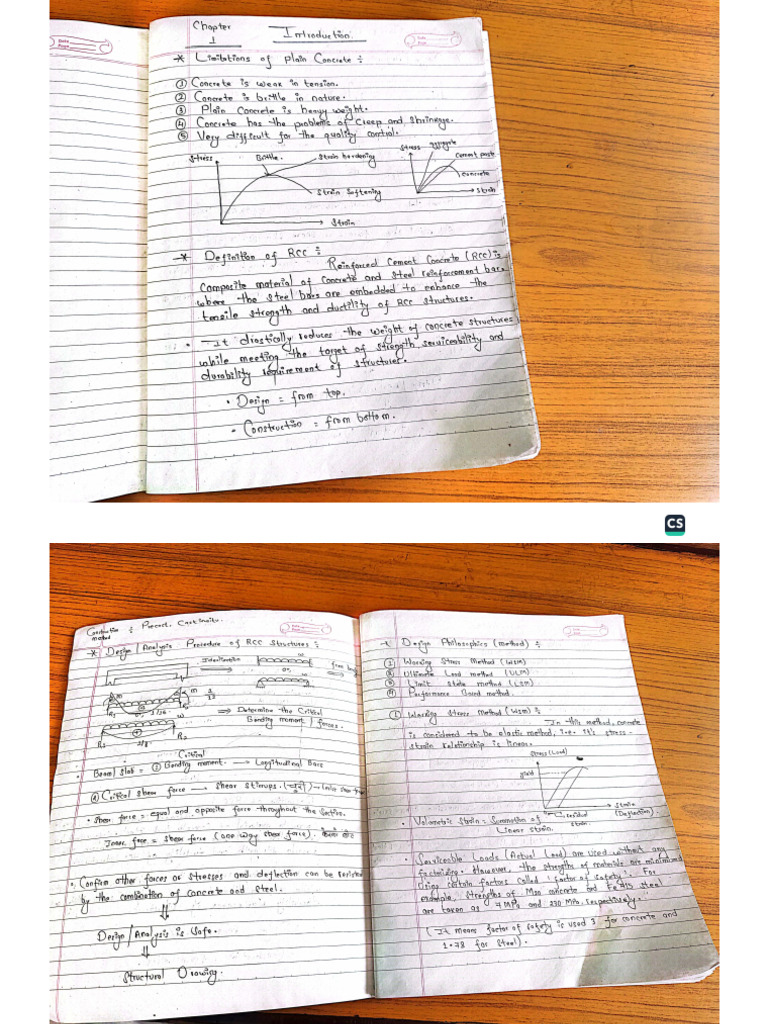 Chapter
1
Introduction.
* Limitations of Plain Concrete :-
① Concrete is weak in tension.
② Concrete is brittle in nature.
③ Plain Concrete is heavy weight.
④ Concrete has the problems of Creep and Shrinkage.
⑤ Very difficult for the quality control.
Stress
Brittle.
Strain hardening
Strain Softening
Strain
Stress
aggregate
Cement paste
Concrete
Strain
* Definition of RCC :-
Reinforced Cement Concrete (RCC) is
composite material of Concrete and Steel reinforcement bars
where the steel bars are embedded to enhance the
tensile strength and ductility of RCC structures.
• It drastically reduces the weight of concrete structures
while meeting the target of strength serviceability and
durability requirement of structures.
• Design = from top.
• Construction = from bottom.
CS
Construction :- Precast, Castinsitu.
method
* Design/Analysis Procedure of RCC Structures :-
Idealization
w
or,
m
R1
R2
w
⇒ Determine the Critical
Bending moment / forces.
Critical
• Beam/Slab = ① Bending moment. → Longitudinal Bars
② Critical shear force → Shear stirrups.
• Shear force = equal and opposite force throughout the Section.
Inner force = Shear force (one way shear force).
• Confirm other forces or stresses and deflection can be resisted
by the combination of concrete and steel.
⇓
Design/Analysis is Safe.
⇓
Structural Drawing.
* Design Philosophies (method) :-
① Working Stress Method (WSM)
② Ultimate Load method (ULM)
③ Limit State method (LSM)
④ Performance Based method.
① Working Stress Method (WSM) :-
In this method, concrete
is considered to be elastic method, i.e. it's stress-
strain relationship is linear.
Stress (Load)
yield
Strain
(Deflection)
residual
strain.
• Volumetric strain = Summation of
Linear strain.
• Serviceable Loads (Actual Load) are used without any
factorizing. However, the strengths of materials are minimized
using certain factors called 'factor of Safety'. For
example, strengths of M20 concrete and Fe 415 steel
are taken as 7 MPa and 230 MPa, respectively.
(It means factor of safety is used 3 for concrete and
1.78 for steel).